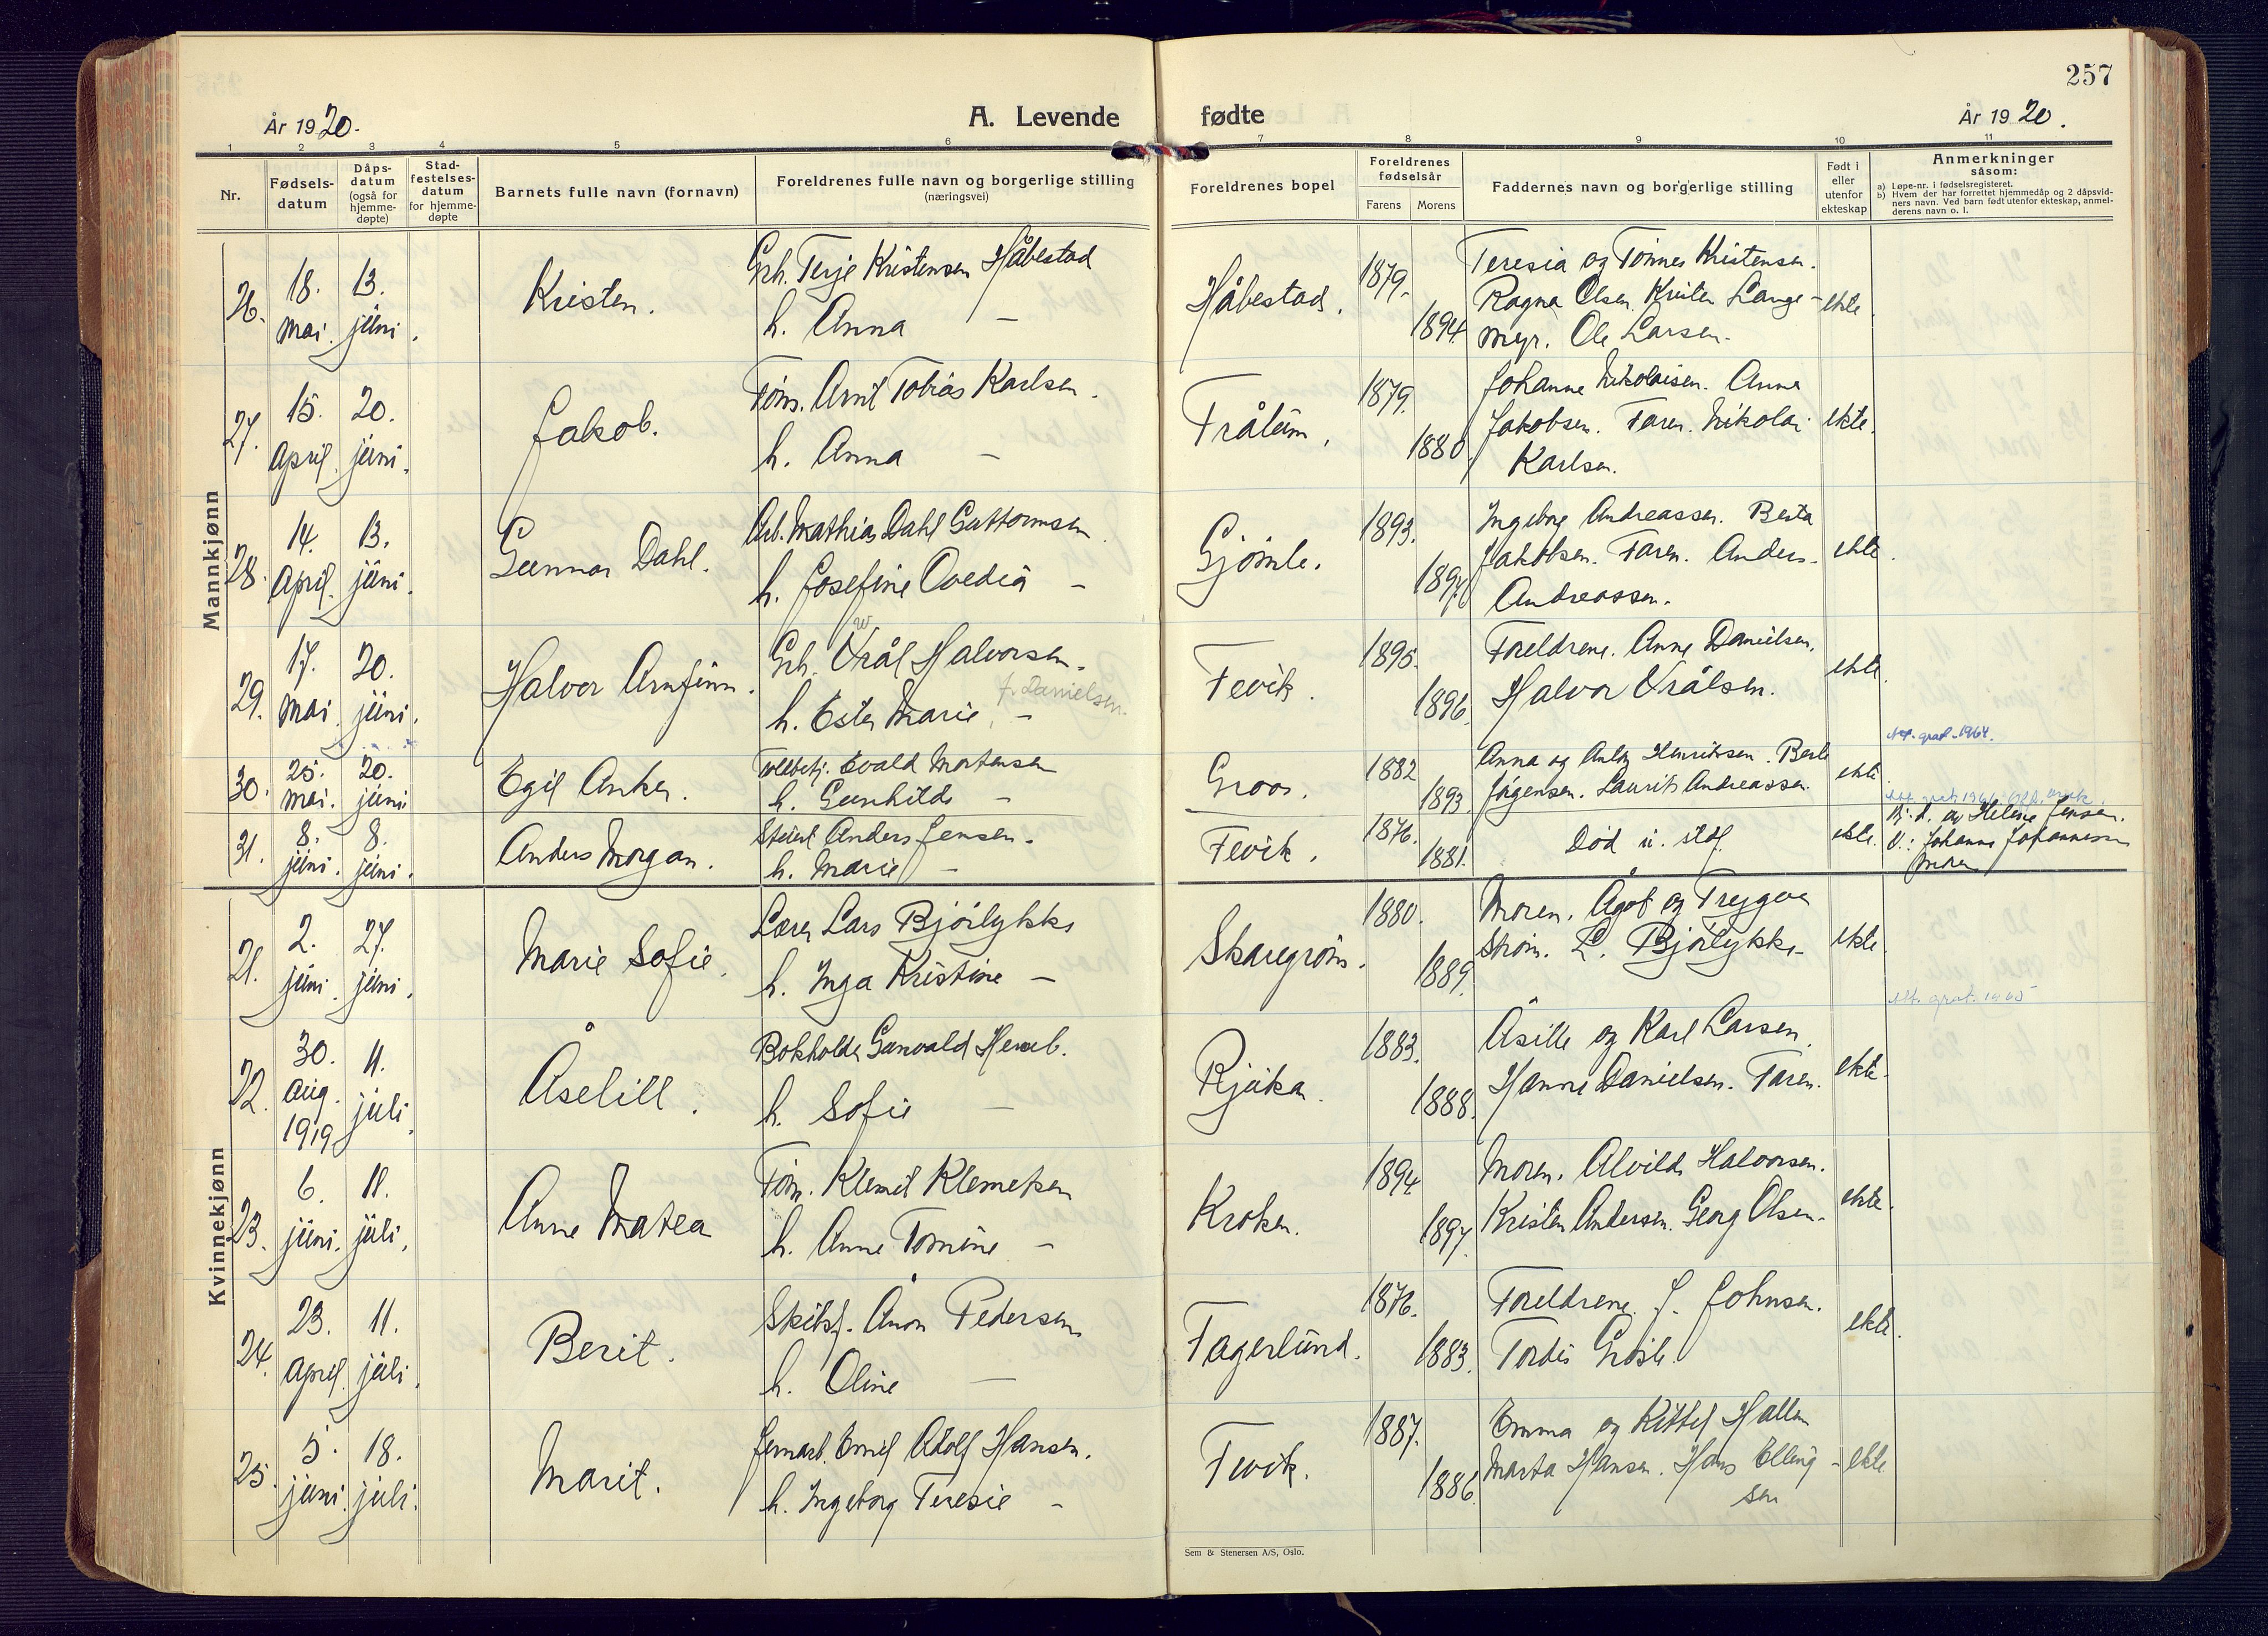 257
År 1920.
A. Levende
fødte
År 1920.
1 2 3 4 5 6 7 8 9 10 11
Nr.
Fødsels-
datum
Dåps-
datum
(også for
hjemme-
døpte)
Stad-
festelses-
datum
for hjemme-
døpte
Barnets fulle navn (fornavn)
Foreldrenes fulle navn og borgerlige stilling
(næringsvei)
Foreldrenes bopel
Foreldrenes
fødselsår
Farens Morens
Faddernes navn og borgerlige stilling
Født i
eller
utenfor
ekteskap
Anmerkninger
såsom:
a) Løpe-nr. i fødselsregisteret.
b) Hvem der har forrettet hjemmedåp og 2 dåpsvid-
ners navn. Ved barn født utenfor ekteskap, anmel-
derens navn o. l.
Mannkjønn
26.
18.
mai.
13.
juni.
Kristen.
Terje Kristensen Håbestad
h. Anna —
Håbestad.
1879.
1894.
Teresia og Tønnes Kristensen.
Ragna Olsen. Kristen Lange-
myr. Ole Larsen.
ekte
27.
15.
April.
20.
juni.
Jakob.
Tøm. Arnt Tobias Karlsen.
h. Anna —
Trålum.
1879.
1880.
Johanne Nikolaisen. Anna
Jakobsen. Faren. Nikolai
Karlsen.
ekte.
28.
14.
April.
13.
juni.
Gunnar Dahl.
Arb. Mathias Dahl Guttormsen
h. Josefine Ovedia —
Gjømle.
1893.
1897.
Ingeborg Andreassen. Berta
Jakobsen. Faren. Anders
Andreassen.
ekte.
29.
17.
mai.
20.
juni.
Halvor Arnfinn.
w
Vrål Halvorsen.
f. Danielsen.
h. Ester Marie. —
Fevik.
1895.
1896.
Foreldrene. Anne Danielsen.
Halvor Vrålsen.
ekte.
Att. grat. 1964.
30.
25.
mai.
20.
juni
Egil Anker.
Evald Mortensen
h. Gunhilde —
Groos.
1882
1893.
Anna og Henriksen.
Jørgensen. Laurits Andreassen.
ekte.
31.
8.
juni.
8.
juni.
Anders Morgan.
Anders Jensen.
h. Marie —
Fevik.
1876.
1881.
Død
ekte.
Hj. d. av Helene Jensen.
V.: Johanne Johannesen
Kvinnekjønn
21.
2.
juni.
27.
juni.
Marie Sofie.
Lærer Lars Bjørlykke
h. Inga Kristine —
Skaregrøm.
1880.
1889.
Moren. Ågot og Tryggve
Strøm. L. Bjørlykke.
ekte.
Att. grat. 1965
22.
30.
Aug.
1919
11.
juli.
Åselill.
Bokholder
h. Sofie —
Rjukan.
1883.
1888.
Åsille og Karl Larsen.
Hanna Danielsen. Faren.
ekte.
23.
6.
juni.
11.
juli.
Anne Matea
Tøm. Klemet Klemetsen
h. Anne Tomine —
Kroken.
1894
1897.
Moren. Alvilde Halvorsen.
Kristen Andersen. Georg Olsen.
ekte.
24.
23.
April.
11.
juli.
Berit.
Skibsf. Pedersen
h. Oline —
Fagerlund.
1876.
1883.
Foreldrene. J. Johnsen.
Tordis
ekte.
25.
5.
juni.
18.
juli.
Marit.
Jernarb. Emil Adolf Hansen.
h. Ingeborg Teresie —
Fevik.
1887.
1886.
Emma og Kittel Hallen
Marta Hansen. Hans Elling-
sen
ekte
Sem & Stenersen A/S, Oslo.